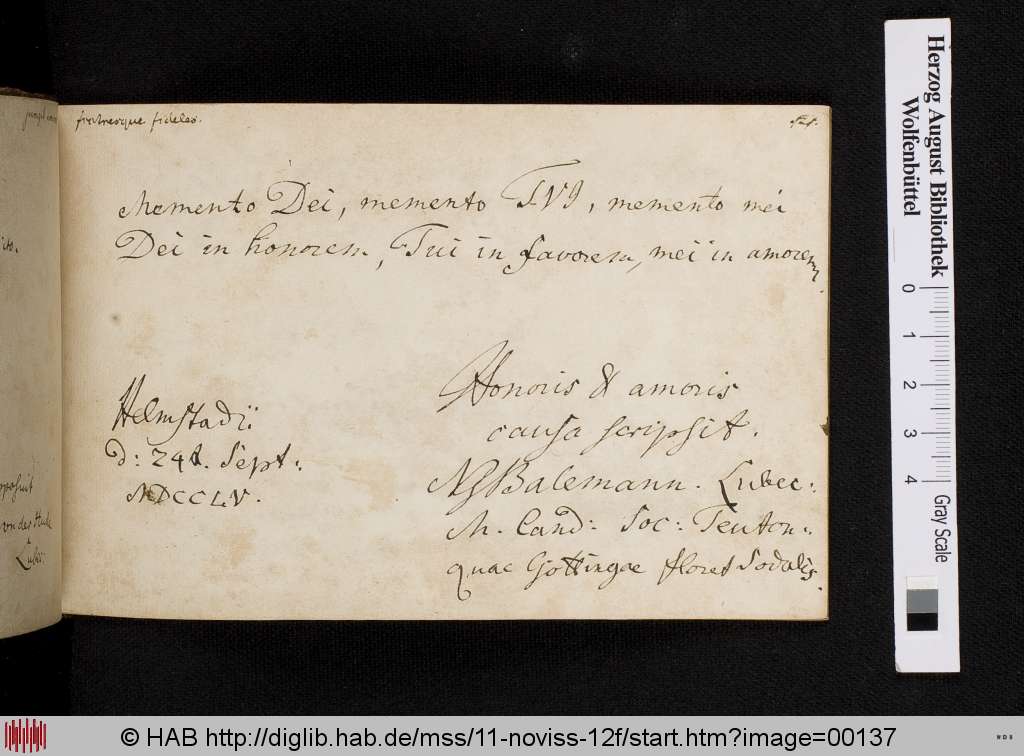 fratresque fideles.
121.
Memento Dei, memento TVI, memento mei
Dei in honorem, Tui in favorem, mei in amorem.
Honoris & amoris
causa scripsit.
Balemann. Lubec:
M. Cand: Soc: Teuton:
quae Gottingae floret Sodalis.
Helmstadii
d: 24t. Sept:
MDCCLV.
von der
Lubec.
Herzog August Bibliothek
Wolfenbüttel
0 1 2 3 4
Gray Scale
© HAB http://diglib.hab.de/mss/11-noviss-12f/start.htm?image=00137